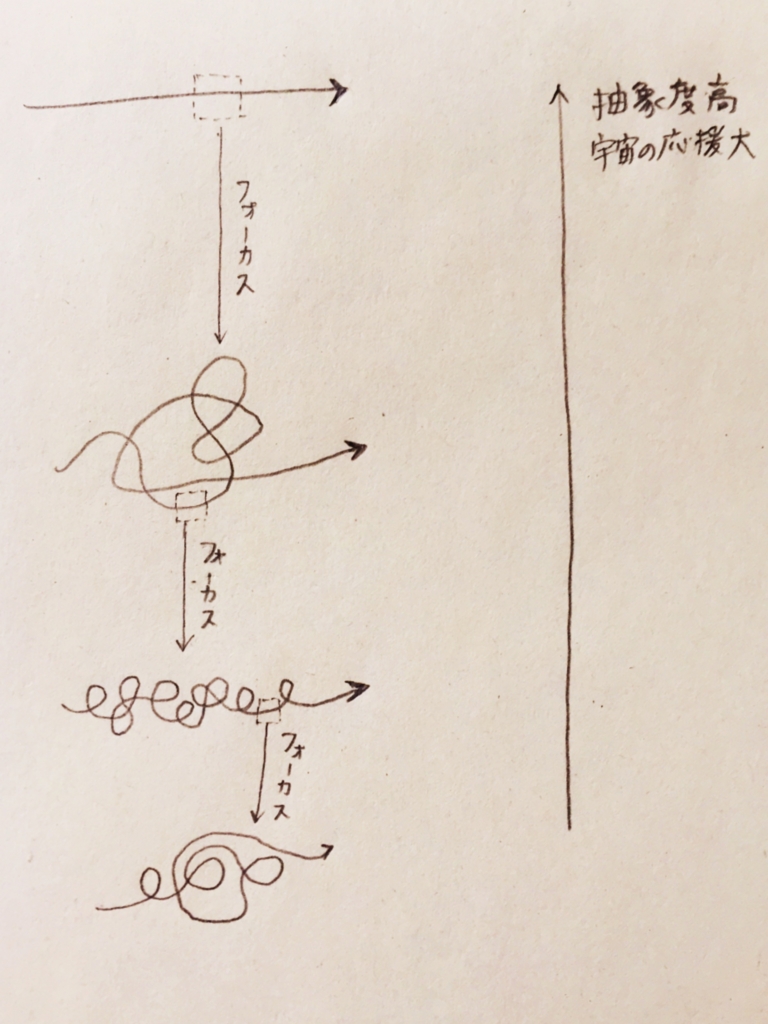 抽象度高
宇宙の応援大
フォーカス
フォーカス
フォーカス